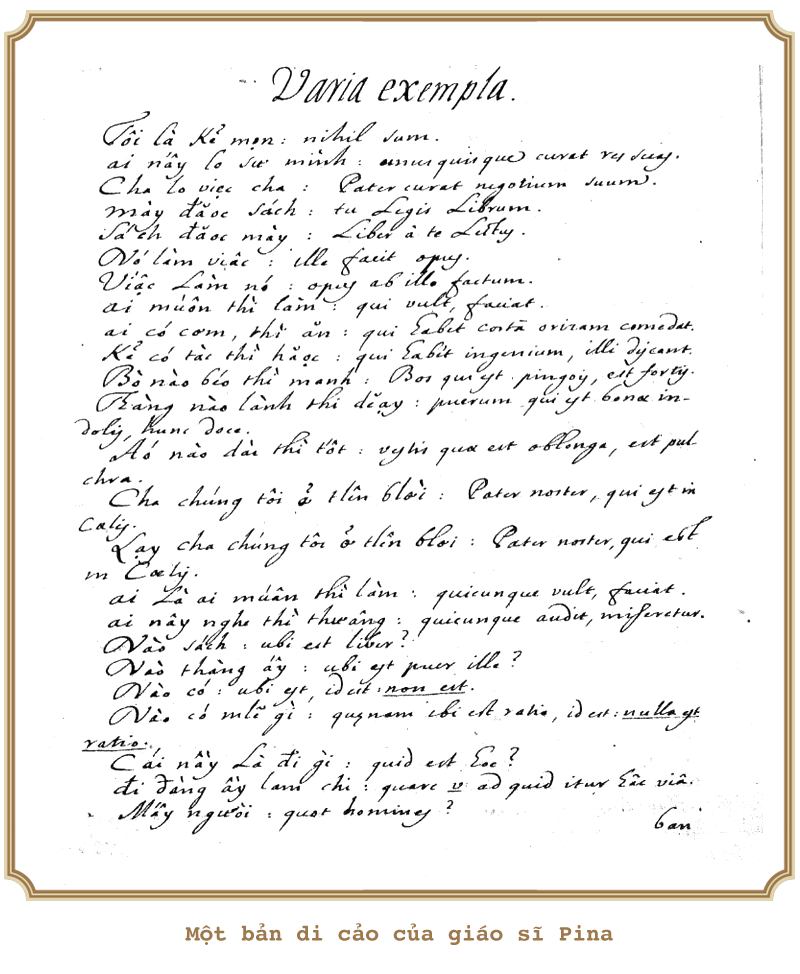 Varia exempla.
Tôi là Kẻ mọn: nihil sum.
ai nấy lo sư mình: unusquisque curat res suas.
Cha lo việc cha: Pater curat negotium suum.
mày đăọc sách: tu Legis Librum.
Sách đăọc mày: Liber à te Lectus.
Nó làm viạc: ille facit opus.
Viạc Làm nó: opus ab illo factum.
ai muốn thì làm: qui vult, faciat.
ai có cơm, thì ăn: qui habet coctā orizam comedat.
Kẻ có tàc thì hăọc: qui habet ingenium, illi dicant.
Bò nào béo thì manh: Bos qui est pingois, est fortis.
Thàng nào lành thì dĕay: puerum qui est bonæ in-
dolis, hunc doce.
Aó nào dài thì tốt: vestis quæ est oblonga, est pul
chra.
Cha chúng tôi ở tlên blời: Pater noster, qui est in
Cælis.
Lạy cha chúng tôi ở tlên blời: Pater noster, qui est
in Cælis.
ai Là ai muấn thì làm: quicunque vult, faciat.
ai nấy nghe thì thưâng: quicunque audit, miseretur.
Nào sách: ubi est liber?
Nào thàng ấy: ubi est puer ille?
Nào có: ubi est, id est: non est.
Nào có mlẽ gì: quænam ibi est ratio, id est: nulla est
ratio.
Cái nầy Là đi gì: quid est hoc?
đi đàng ấy lam chi: quare v ad quid itur hâc viâ.
Mấy người: quot homines?
ban
Một bản di cảo của giáo sĩ Pina